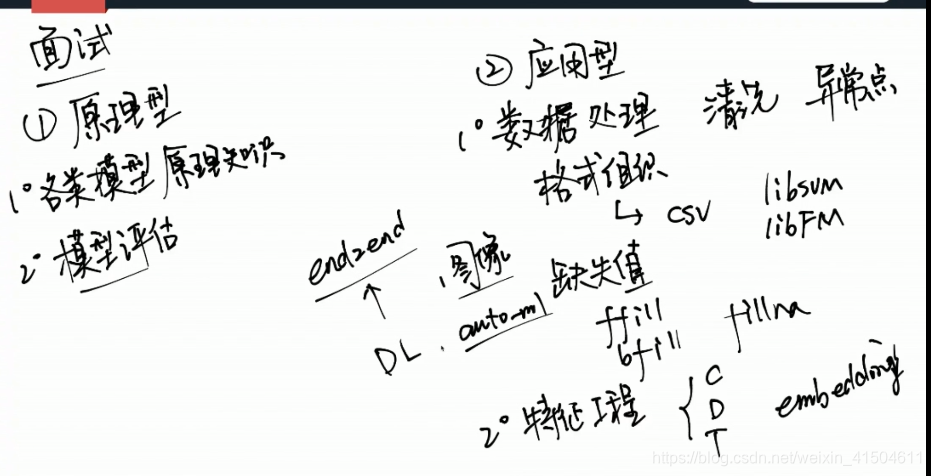 面试
① 原理型
1° 各类模型 原理知识
2° 模型评估
② 应用型
1° 数据处理 清洗 异常点
格式组织
↳ csv libsvm
libFM
end2end
图像
↑
DL . auto-ml
缺失值
ffill fillna
bfill
2° 特征工程 { C D T embedding
https://blog.csdn.net/weixin_41504611